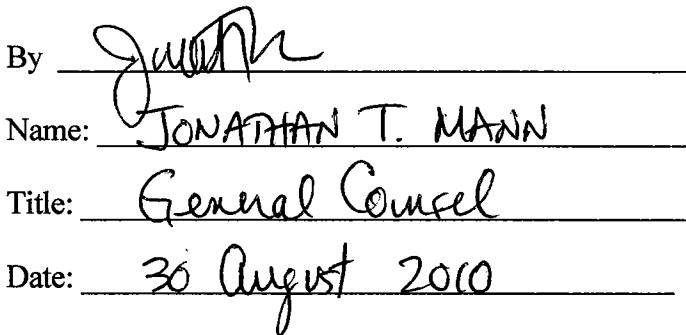 By
Name: JONATHAN T. MANN
Title: General Counsel
Date: 30 August 2010